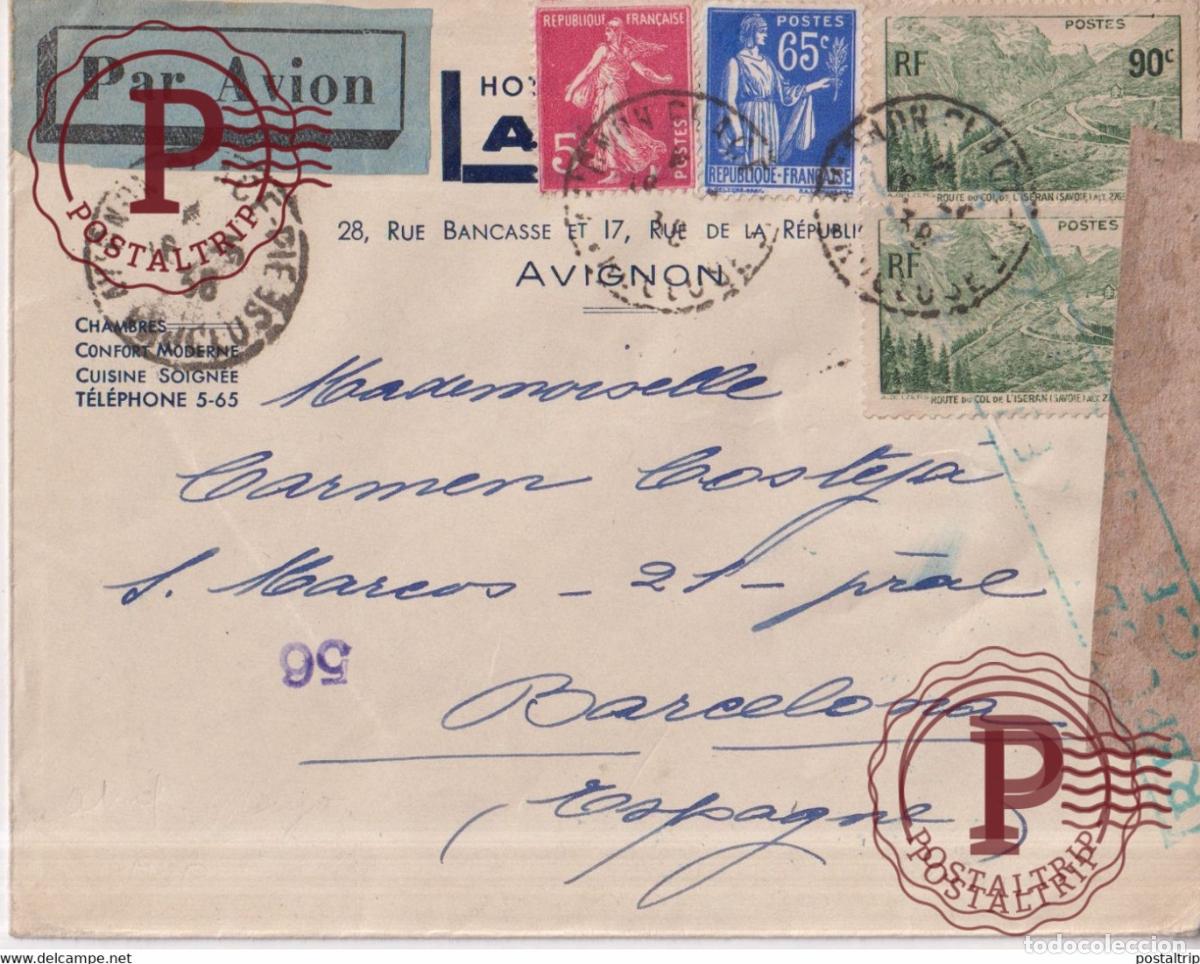 Par Avion
POSTALTRIP
HO
A
REPUBLIQUE FRANÇAISE
5
POSTES
POSTES
65c
REPUBLIQUE-FRANÇAISE
POSTES
RF
90c
ROUTE DU COL DE L'ISERAN (SAVOIE) ALT. 276
POSTES
RF
ROUTE DU COL DE L'ISERAN (SAVOIE) ALT. 27
28, RUE BANCASSE ET 17, RUE DE LA RÉPUBLI
AVIGNON
VAUCLUSE
38
CHAMBRES
CONFORT MODERNE
CUISINE SOIGNÉE
TÉLÉPHONE 5-65
Mademoiselle
Carmen Costeja
S. Marcos - 21 - pral
56
Barcelona
Espagne
POSTALTRIP
POSTALTRIP
todocoleccion
www.delcampe.net
postaltrip